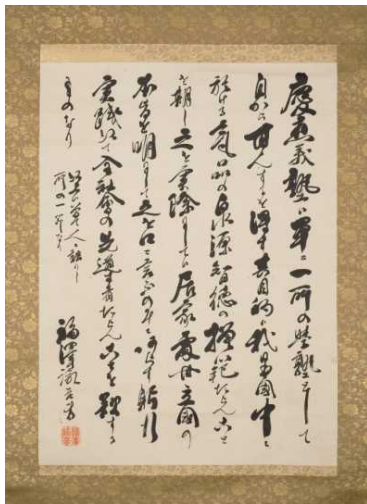 慶應義塾ハ単に一所の學塾として
自から甘んするを得す其目的ハ我日本國中に
於ける氣品の泉源智徳の模範たらんことを
期し之を実際にしてハ居家處世立國の
本旨を明にして之を口に言ふのみにあらす躬行
実践以て全社會の先導者たらんことを欲する
ものなり
以上は曾て人に語りし
所の一節なり
福澤諭吉書